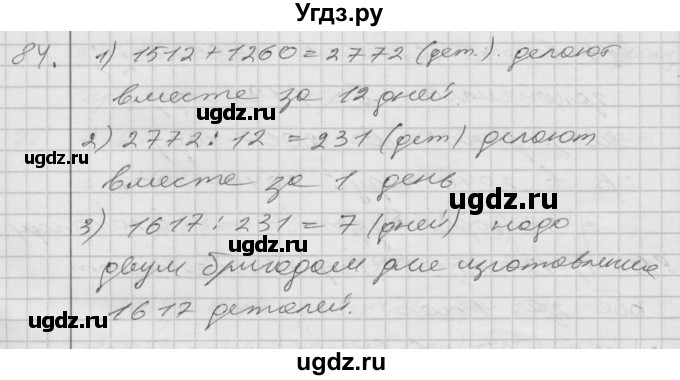 Угдз.ру
84. 1) 1512 + 1260 = 2772 (дет.) делают
вместе за 12 дней
2) 2772 : 12 = 231 (дет) делают
вместе за 1 день
3) 1617 : 231 = 7 (дней) надо
двум бригадам для изготовления
1617 деталей.
ugdz.ru
ugdz.ru
ugdz.ru
ugdz.ru
ugdz.ru
ugdz.ru
ugdz.ru
ugdz.ru